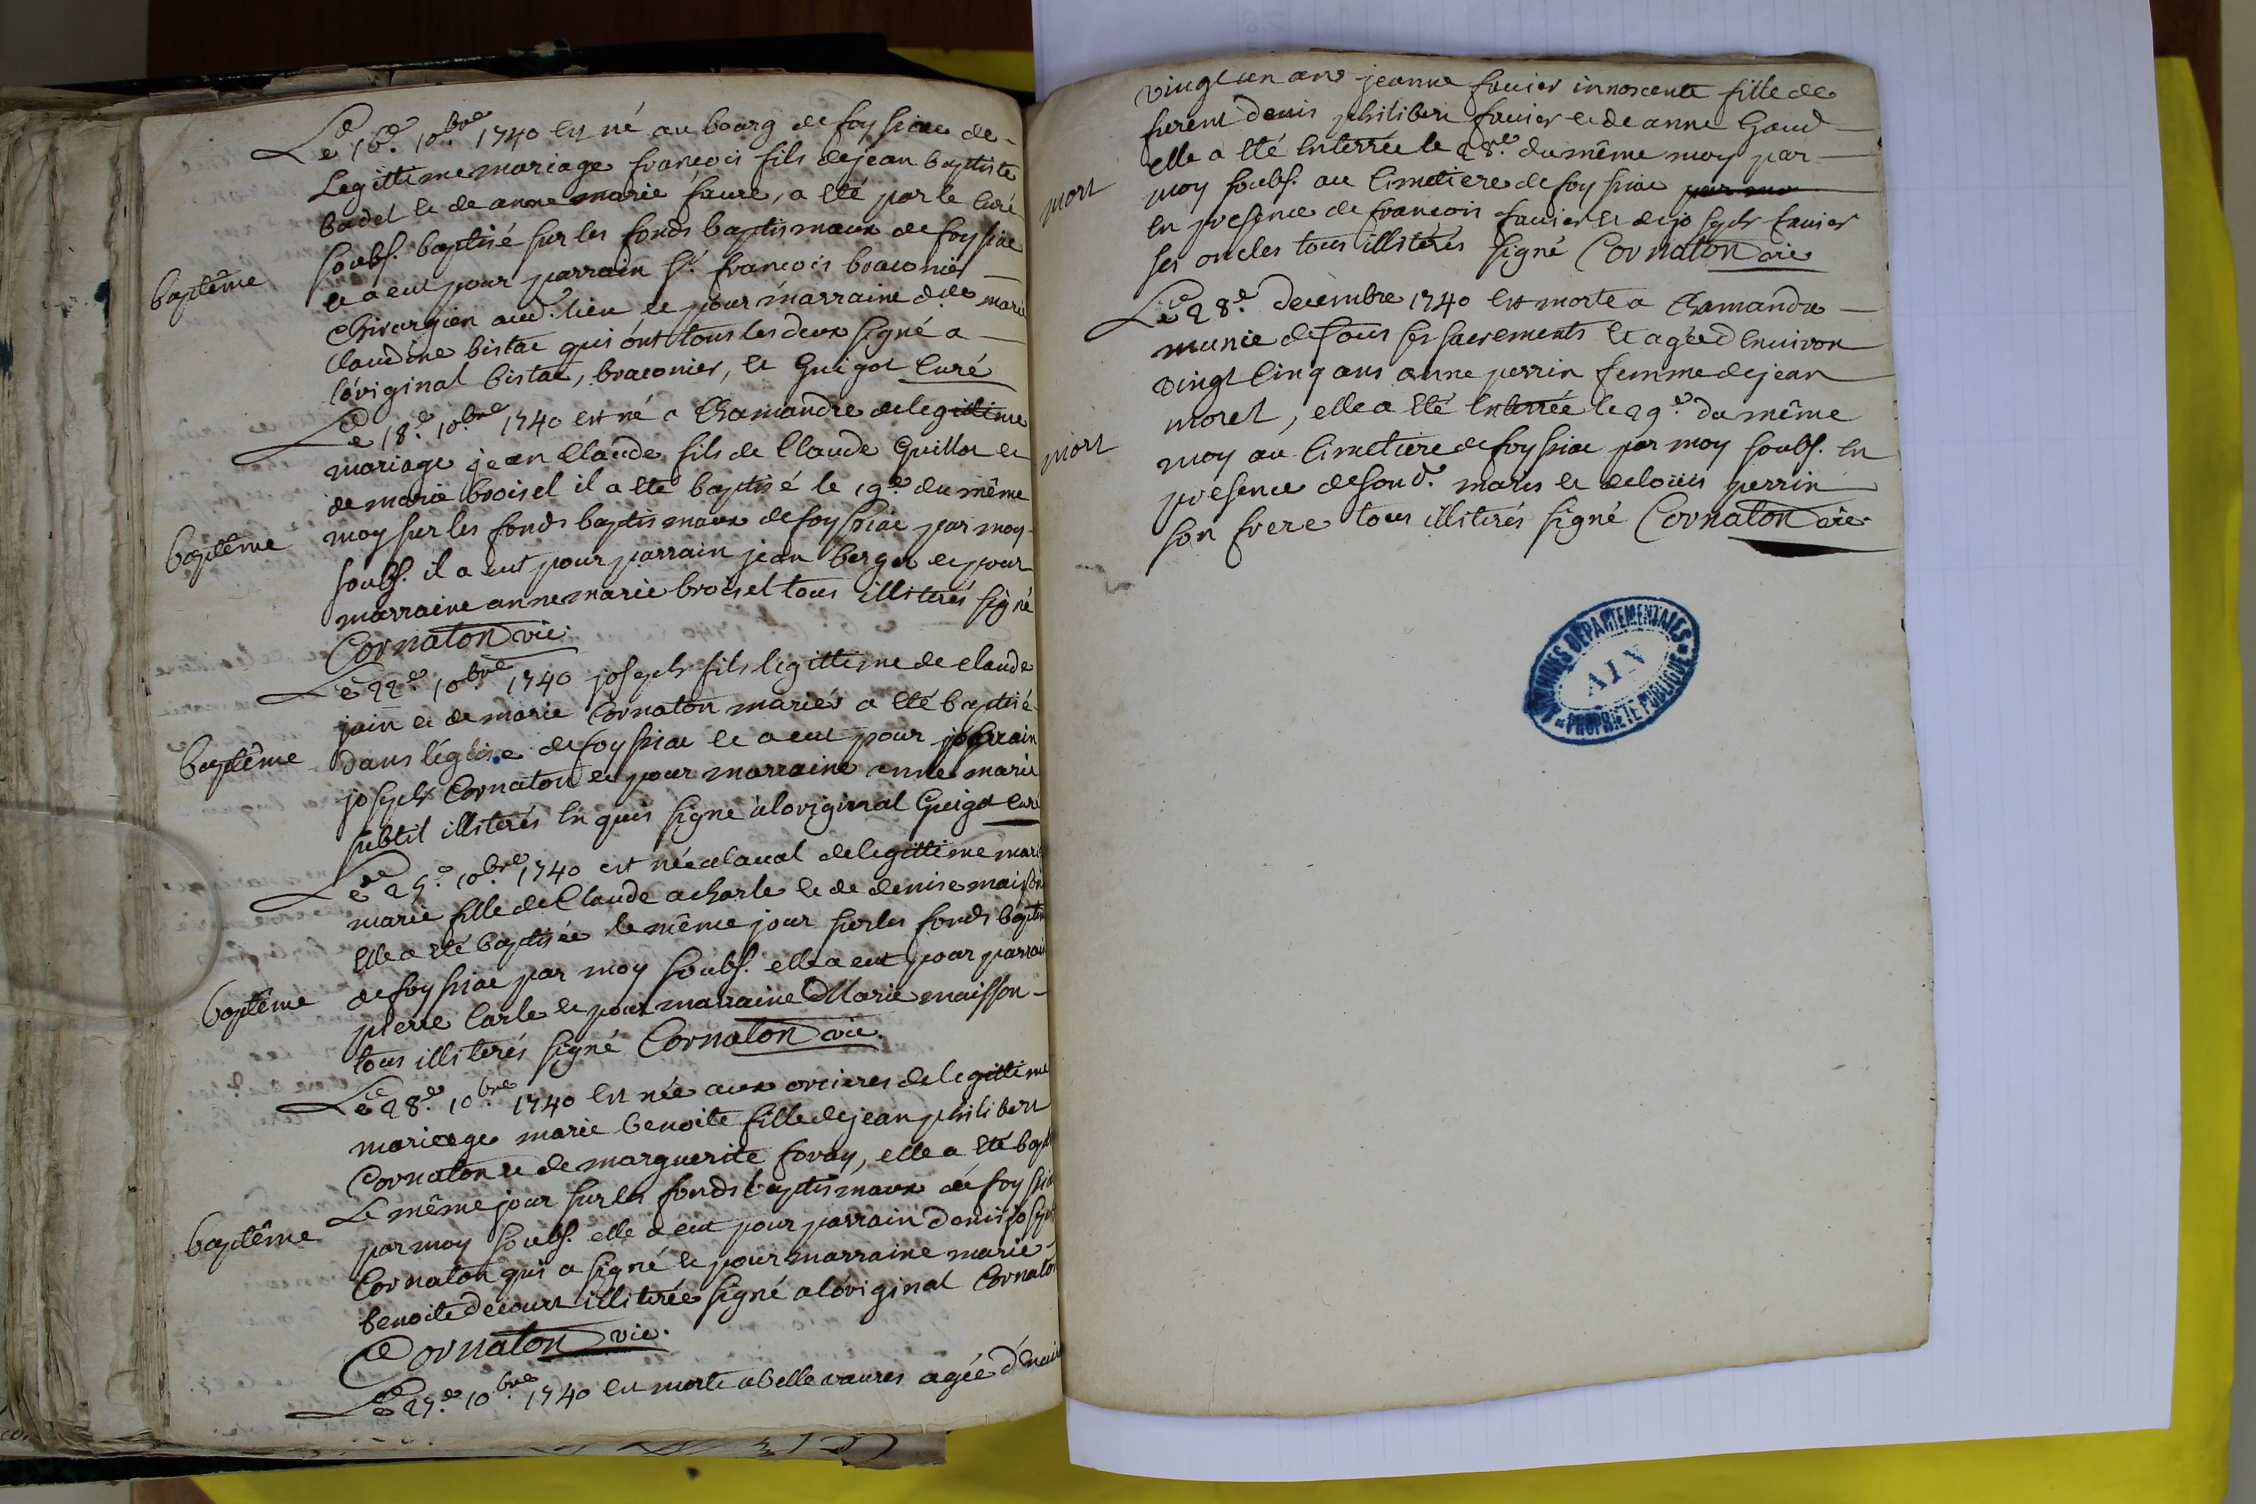 Le 16.e 10.bre 1740 est né au bourg de foyssiac de
Legittime mariage françois fils de jean baptiste
badel et de anne marie faure, a été par le curé
soubs. baptisé sur les fonds baptismaux de foyssiac
baptême
et a eut pour parrain sr. françois braconier
chirurgien aud. lieu et pour marraine dlle marie
claudine bistac qui ont tous les deux signé a
l'original bistac, braconier, et Guigot curé
Le 18.e 10.bre 1740 est né a Chamandre de legitime
mariage jean Claude fils de Claude Guillot et
de marie broisel il a été baptisé le 19.e du même
baptême
moy sur les fonds baptismaux de foyssiac par moy
soubs. il a eut pour parrain jean berger et pour
marraine anne marie broisel tous illiterés signé
Cornaton vic.
Le 22.e 10.bre 1740 joseph fils legittime de claude
juin et de marie Cornaton mariés a été baptisé
baptême
dans l'église de foyssiac et a eut pour parrain
joseph Cornaton et pour marraine anne marie
subtil illiterés en quis signé a loriginal Guigot curé
Le 25.e 10.bre 1740 est née a laval de legittime mari
marie fille de Claude acharle et de denise maisson
Elle a été baptisée le même jour sur les fonds baptis
baptême
de foyssiac par moy soubs. elle a eut pour parrai
pierre Carle et pour marraine Marie maisson
tous illiterés signé Cornaton vic.
Le 28.e 10.bre 1740 est née aux orcieres de legittime
mariage marie benoite fille de jean philibert
Cornaton et de marguerite foray, elle a été bapt
Le même jour sur les fonds baptismaux de foyssia
baptême
par moy soubs. elle a eut pour parrain denis joseph
Cornaton qui a signé et pour marraine marie
benoite decourt illiterée signé a l'original Cornaton
Cornaton vic.
Le 27.e 10.bre 1740 est morte a belle vavres agée d'envir
vingt un ans jeanne favier innoscente fille de
furent denis philibert favier et de anne Gaud
elle a été enterrée le 28.e du même moy par
mort
moy soubs. au cimetiere de foyssiac par mo
en presence de françois favier et de joseph favier
ses oncles tous illiterés signé Cornaton vic
Le 28.e decembre 1740 est morte a Chamandre
munie de tous ses sacrements et agée d'environ
vingt cinq ans anne perrin femme de jean
morel, elle a été enterrée le 29.e du même
mort
moy au cimetiere de foyssiac par moy soubs. en
présence de sond. maris et de louis perrin
son frere tous illiterés signé Cornaton vic.
ARCHIVES DÉPARTEMENTALES
AIN
PROPRIÉTÉ PUBLIQUE